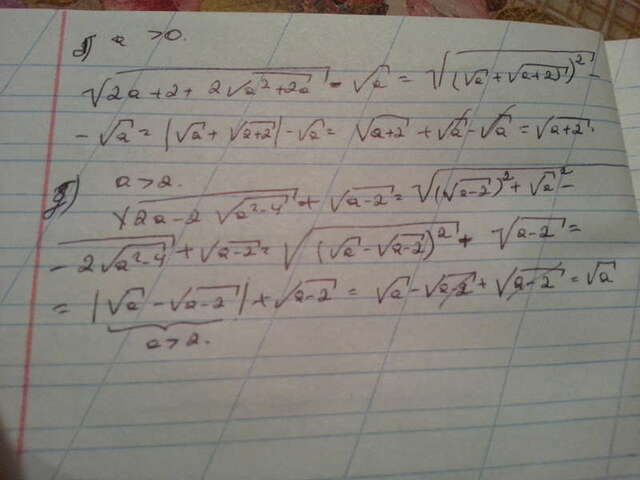 б) a > 0.
√(2a+2+2√(a²+2a)) - √a = √((√a + √(a+2))²) -
- √a = |√a + √(a+2)| - √a = √(a+2) + √a - √a = √(a+2).
g) a > 2.
√(2a-2√(a²-4)) + √(a-2) = √((√(a-2))² + √a² -
- 2√(a²-4)) + √(a-2) = √((√a - √(a-2))²) + √(a-2) =
= |√a - √(a-2)| + √(a-2) = √a - √(a-2) + √(a-2) = √a
a > 2.